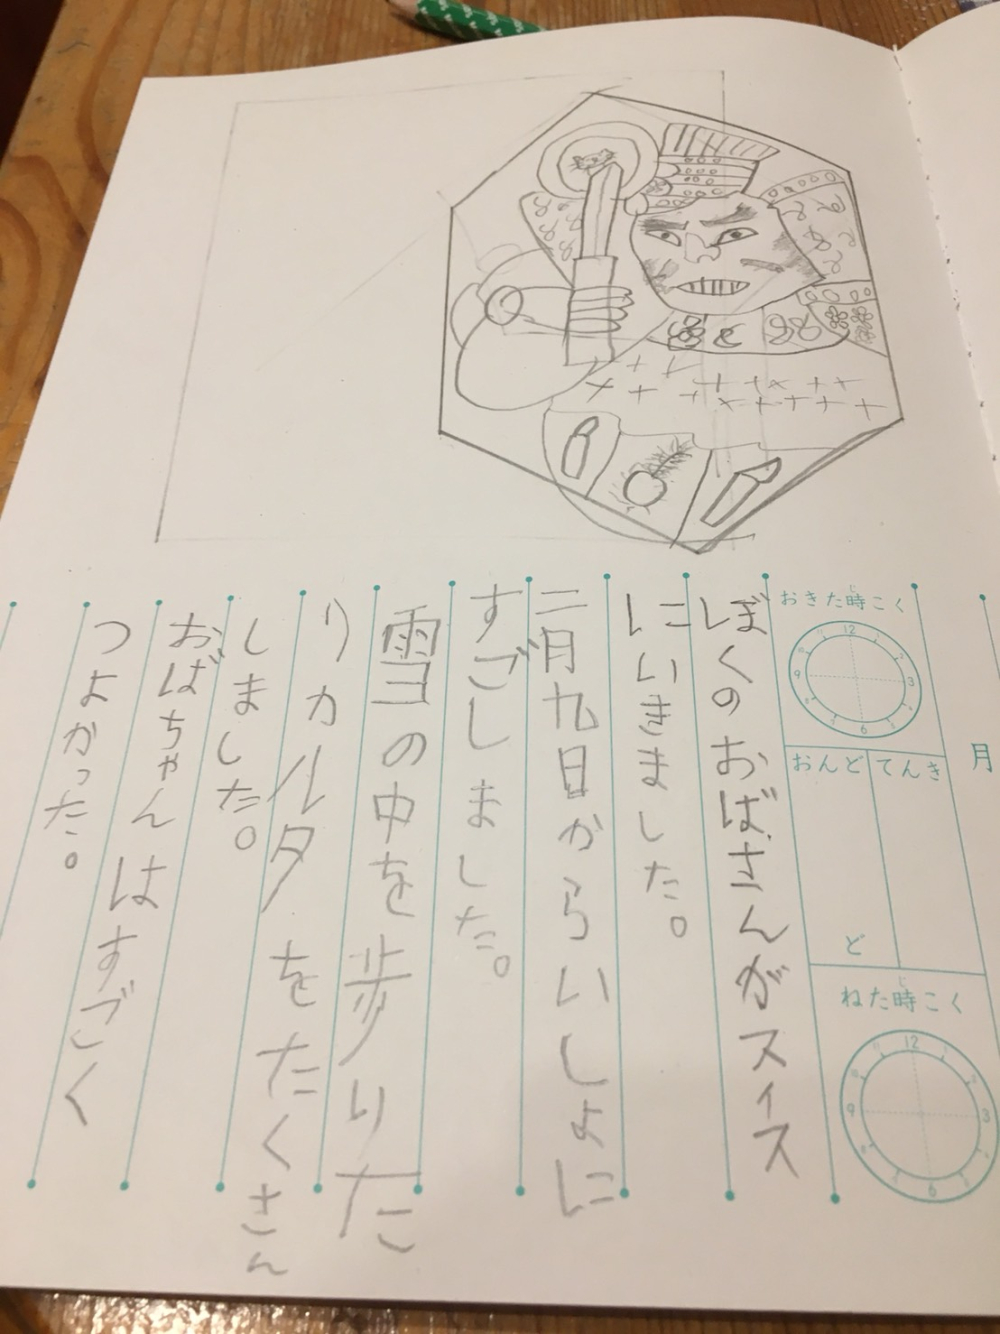 月
おきた時こく
じ
12
3
6
9
おんど
てんき
ど
ねた時こく
じ
12
3
6
9
ぼくのおばさんがスイス
にいきました。
二月九日からいしょに
すごしました。
雪の中を歩りた
りカルタをたくさん
しました。
おばちゃんはすごく
つよかった。